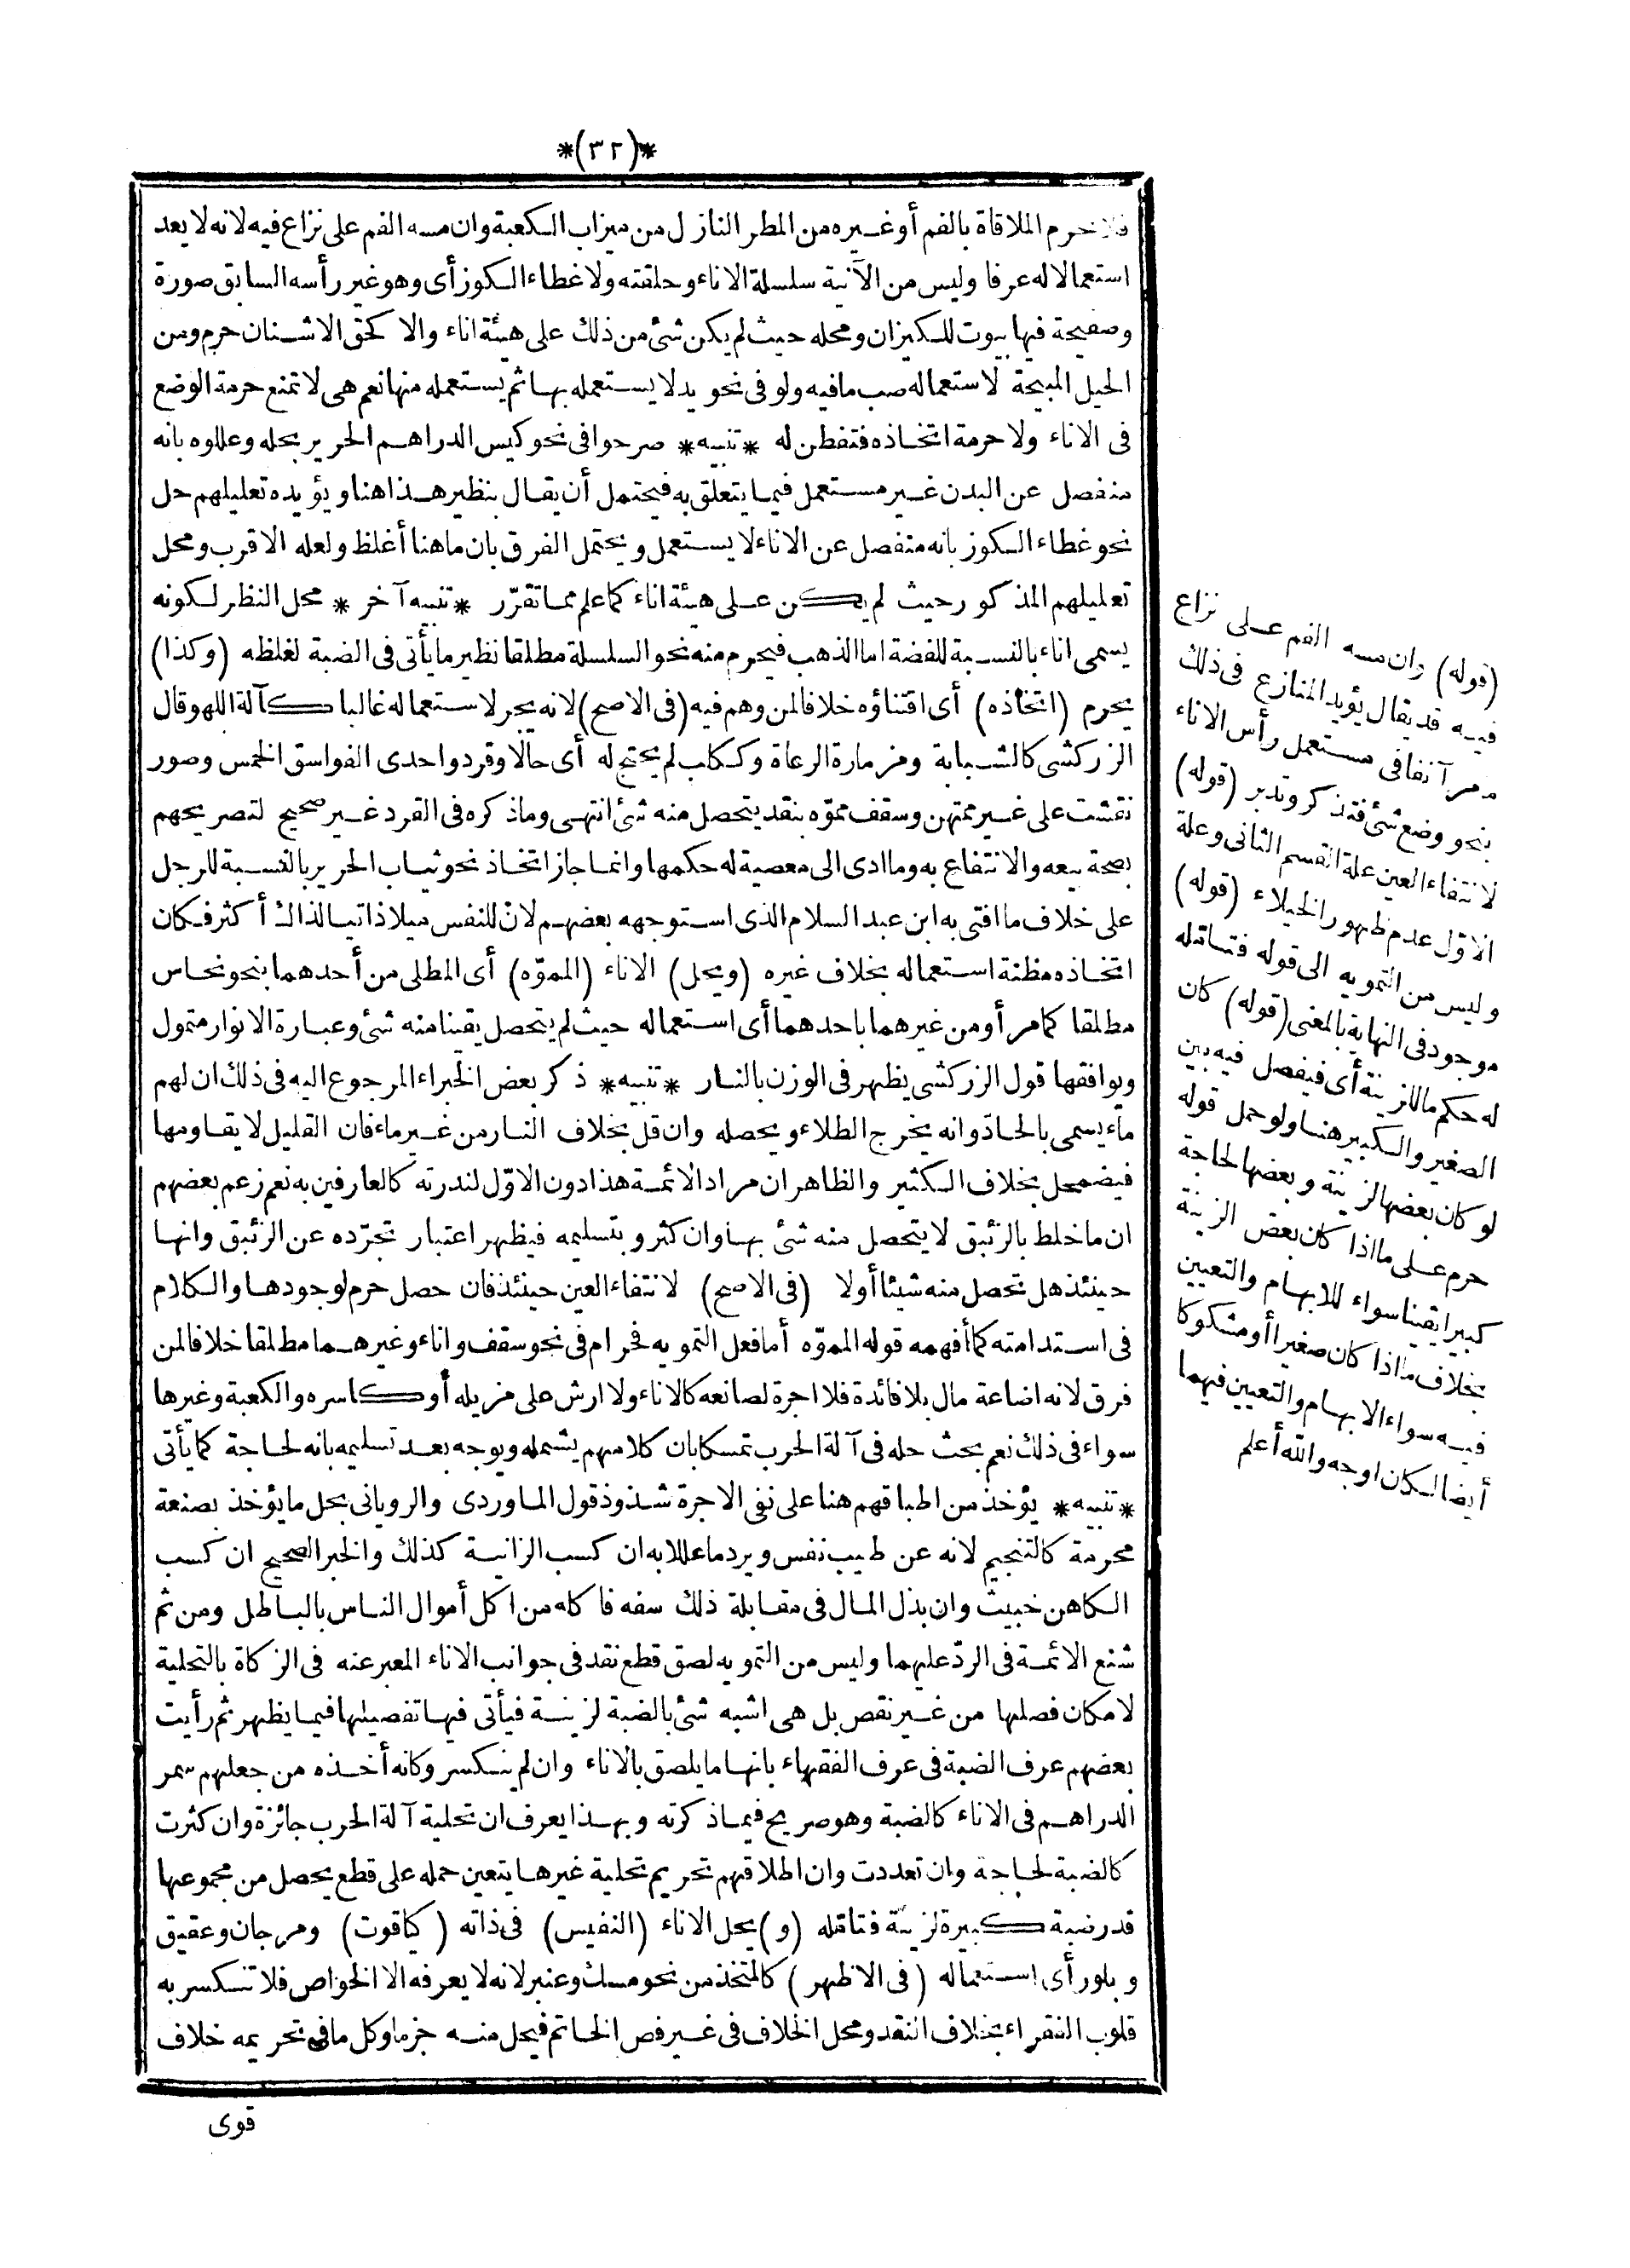 *(٣٢)*
فلا تحرم الملاقاة بالفم أو غيره من المطر النازل من ميزاب الكعبة وان مسه الفم على نزاع فيه لانه لا يعد
استعمالا له عرفا وليس من الآنية سلسلة الاناء وحلقته ولا غطاء الكوز أى وهو غير رأسه السابق صورة
وصفيحة فيها بيوت للكيزان ومحله حيث لم يكن شئ من ذلك على هيئة اناء والا كحق الاشنان حرم ومن
الحيل المبيحة لاستعماله صب ما فيه ولو فى نحو يد لا يستعمله بها ثم يستعمله منها نعم هى لا تمنع حرمة الوضع
فى الاناء ولا حرمة اتخاذه فتفطن له *تنبيه* صرحوا فى نحو كيس الدراهم الحرير بحله وعللوه بانه
منفصل عن البدن غير مستعمل فيما يتعلق به فيحتمل أن يقال بنظير هذا هنا ويؤيده تعليلهم حل
نحو غطاء الكوز بانه منفصل عن الاناء لا يستعمل ويحتمل الفرق بان ما هنا أغلظ ولعله الاقرب ومحل
تعليلهم المذكور حيث لم يكن على هيئة اناء كما علم مما تقرّر *تنبيه آخر* محل النظر لكونه
يسمى اناء بالنسبة للفضة اما الذهب فيحرم منه نحو السلسلة مطلقا نظير ما يأتى فى الضبة لغلظه (وكذا)
يحرم (اتخاذه) أى اقتناؤه خلافا لمن وهم فيه (فى الاصح) لانه يجر لاستعماله غالبا كآلة اللهو وقال
الزركشى كالشبابة ومزمارة الرعاة وككلب لم يحتج له أى حالا وقرد واحدى الفواسق الخمس وصور
نقشت على غير ممتهن وسقف مموّه بنقد يتحصل منه شئ انتهى وما ذكره فى القرد غير صحيح لتصريحهم
بصحة بيعه والانتفاع به وما ادى الى معصية له حكمها وانما جاز اتخاذ نحو ثياب الحرير بالنسبة للرجل
على خلاف ما افتى به ابن عبد السلام الذى استوجهه بعضهم لانّ للنفس ميلا ذاتيا لذاك أكثر فكان
اتخاذه مظنة استعماله بخلاف غيره (ويحل) الاناء (المموّه) أى المطلى من أحدهما بنحو نحاس
مطلقا كما مر أو من غيرهما باحدهما أى استعماله حيث لم يتحصل يقينا منه شئ وعبارة الانوار متمول
ويوافقها قول الزركشى يظهر فى الوزن بالنار *تنبيه* ذكر بعض الخبراء المرجوع اليه فى ذلك ان لهم
ماء يسمى بالحاد وانه يخرج الطلاء ويحصله وان قل بخلاف النار من غير ماء فان القليل لا يقاومها
فيضمحل بخلاف الكثير والظاهر ان مراد الائمة هذا دون الاوّل لندرته كالعارفين به نعم زعم بعضهم
ان ما خلط بالزئبق لا يتحصل منه شئ بها وان كثر وبتسليمه فيظهر اعتبار تجرّده عن الزئبق وانها
حينئذ هل تحصل منه شيئا أولا (فى الاصح) لانتفاء العين حينئذ فان حصل حرم لوجودها والكلام
فى استدامته كما أفهمه قوله المموّه أما فعل التمويه فحرام فى نحو سقف واناء وغيرهما مطلقا خلافا لمن
فرق لانه اضاعة مال بلا فائدة فلا اجرة لصانعه كالاناء ولا ارش على مزيله أو كاسره والكعبة وغيرها
سواء فى ذلك نعم بحث حله فى آلة الحرب تمسكا بان كلامهم يشمله ويوجه بعد تسليمه بانه لحاجة كما يأتى
*تنبيه* يؤخذ من اطباقهم هنا على نفى الاجرة شذوذ قول الماوردى والرويانى بحل ما يؤخذ بصنعة
محرمة كالتنجيم لانه عن طيب نفس ويرد ما عللا به ان كسب الزانية كذلك والخبر الصحيح ان كسب
الكاهن خبيث وان بذل المال فى مقابلة ذلك سفه فاكله من اكل أموال الناس بالباطل ومن ثم
شنع الائمة فى الردّ عليهما وليس من التمويه لصق قطع نقد فى جوانب الاناء المعبر عنه فى الزكاة بالتحلية
لامكان فصلها من غير نقص بل هى اشبه شئ بالضبة لزينة فيأتى فيها تفصيلها فيما يظهر ثم رأيت
بعضهم عرف الضبة فى عرف الفقهاء بانها ما يلصق بالاناء وان لم ينكسر وكانه أخذه من جعلهم سمر
الدراهم فى الاناء كالضبة وهو صريح فيما ذكرته وبهذا يعرف ان تحلية آلة الحرب جائزة وان كثرت
كالضبة لحاجة وان تعددت وان اطلاقهم تحريم تحلية غيرها يتعين حمله على قطع يحصل من مجموعها
قدر ضبة كبيرة لزينة فتامّله (و) يحل الاناء (النفيس) فى ذاته (كياقوت) ومرجان وعقيق
وبلور أى استعماله (فى الاظهر) كالمتخذ من نحو مسك وعنبر لانه لا يعرفه الا الخواص فلا تنكسر به
قلوب الفقراء بخلاف النقد ومحل الخلاف فى غير فص الخاتم فيحل منه جزما وكل ما فى تحريمه خلاف
قوى
(قوله) وان مسه الفم على نزاع
فيه قد يقال يؤيد المنازع فى ذلك
ما مر آنفا فى مستعمل رأس الاناء
بنحو وضع شئ فتذكر وتدبر (قوله)
لانتفاء العين علة القسم الثانى وعلة
الاوّل عدم ظهور الخيلاء (قوله)
وليس من التمويه الى قوله فتامّله
موجود فى النهاية بالمعنى (قوله) كان
له حكم ما للزينة أى فيفصل فيه بين
الصغير والكبير هنا ولو حمل قوله
لو كان بعضها لزينة وبعضها لحاجة
حرم على ما اذا كان بعض الزينة
كبيرا يقينا سواء للابهام والتعيين
بخلاف ما اذا كان صغيرا أو مشكوكا
فيه سواء الابهام والتعيين فيهما
أيضا لكان اوجه والله أعلم